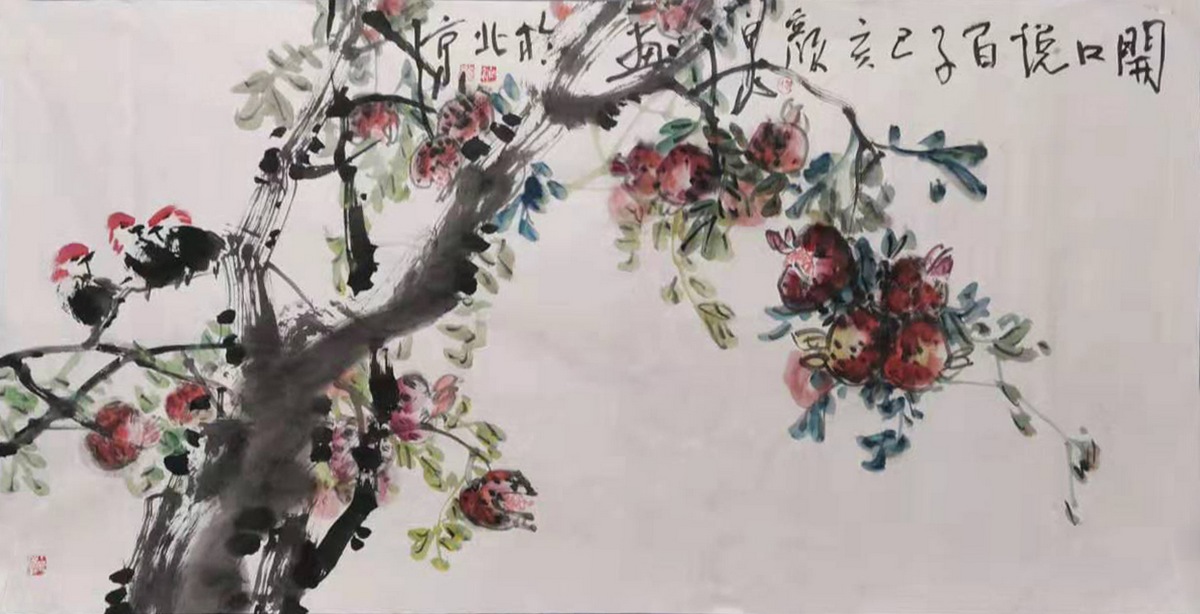 開口說百子己亥顏昊畫於北京